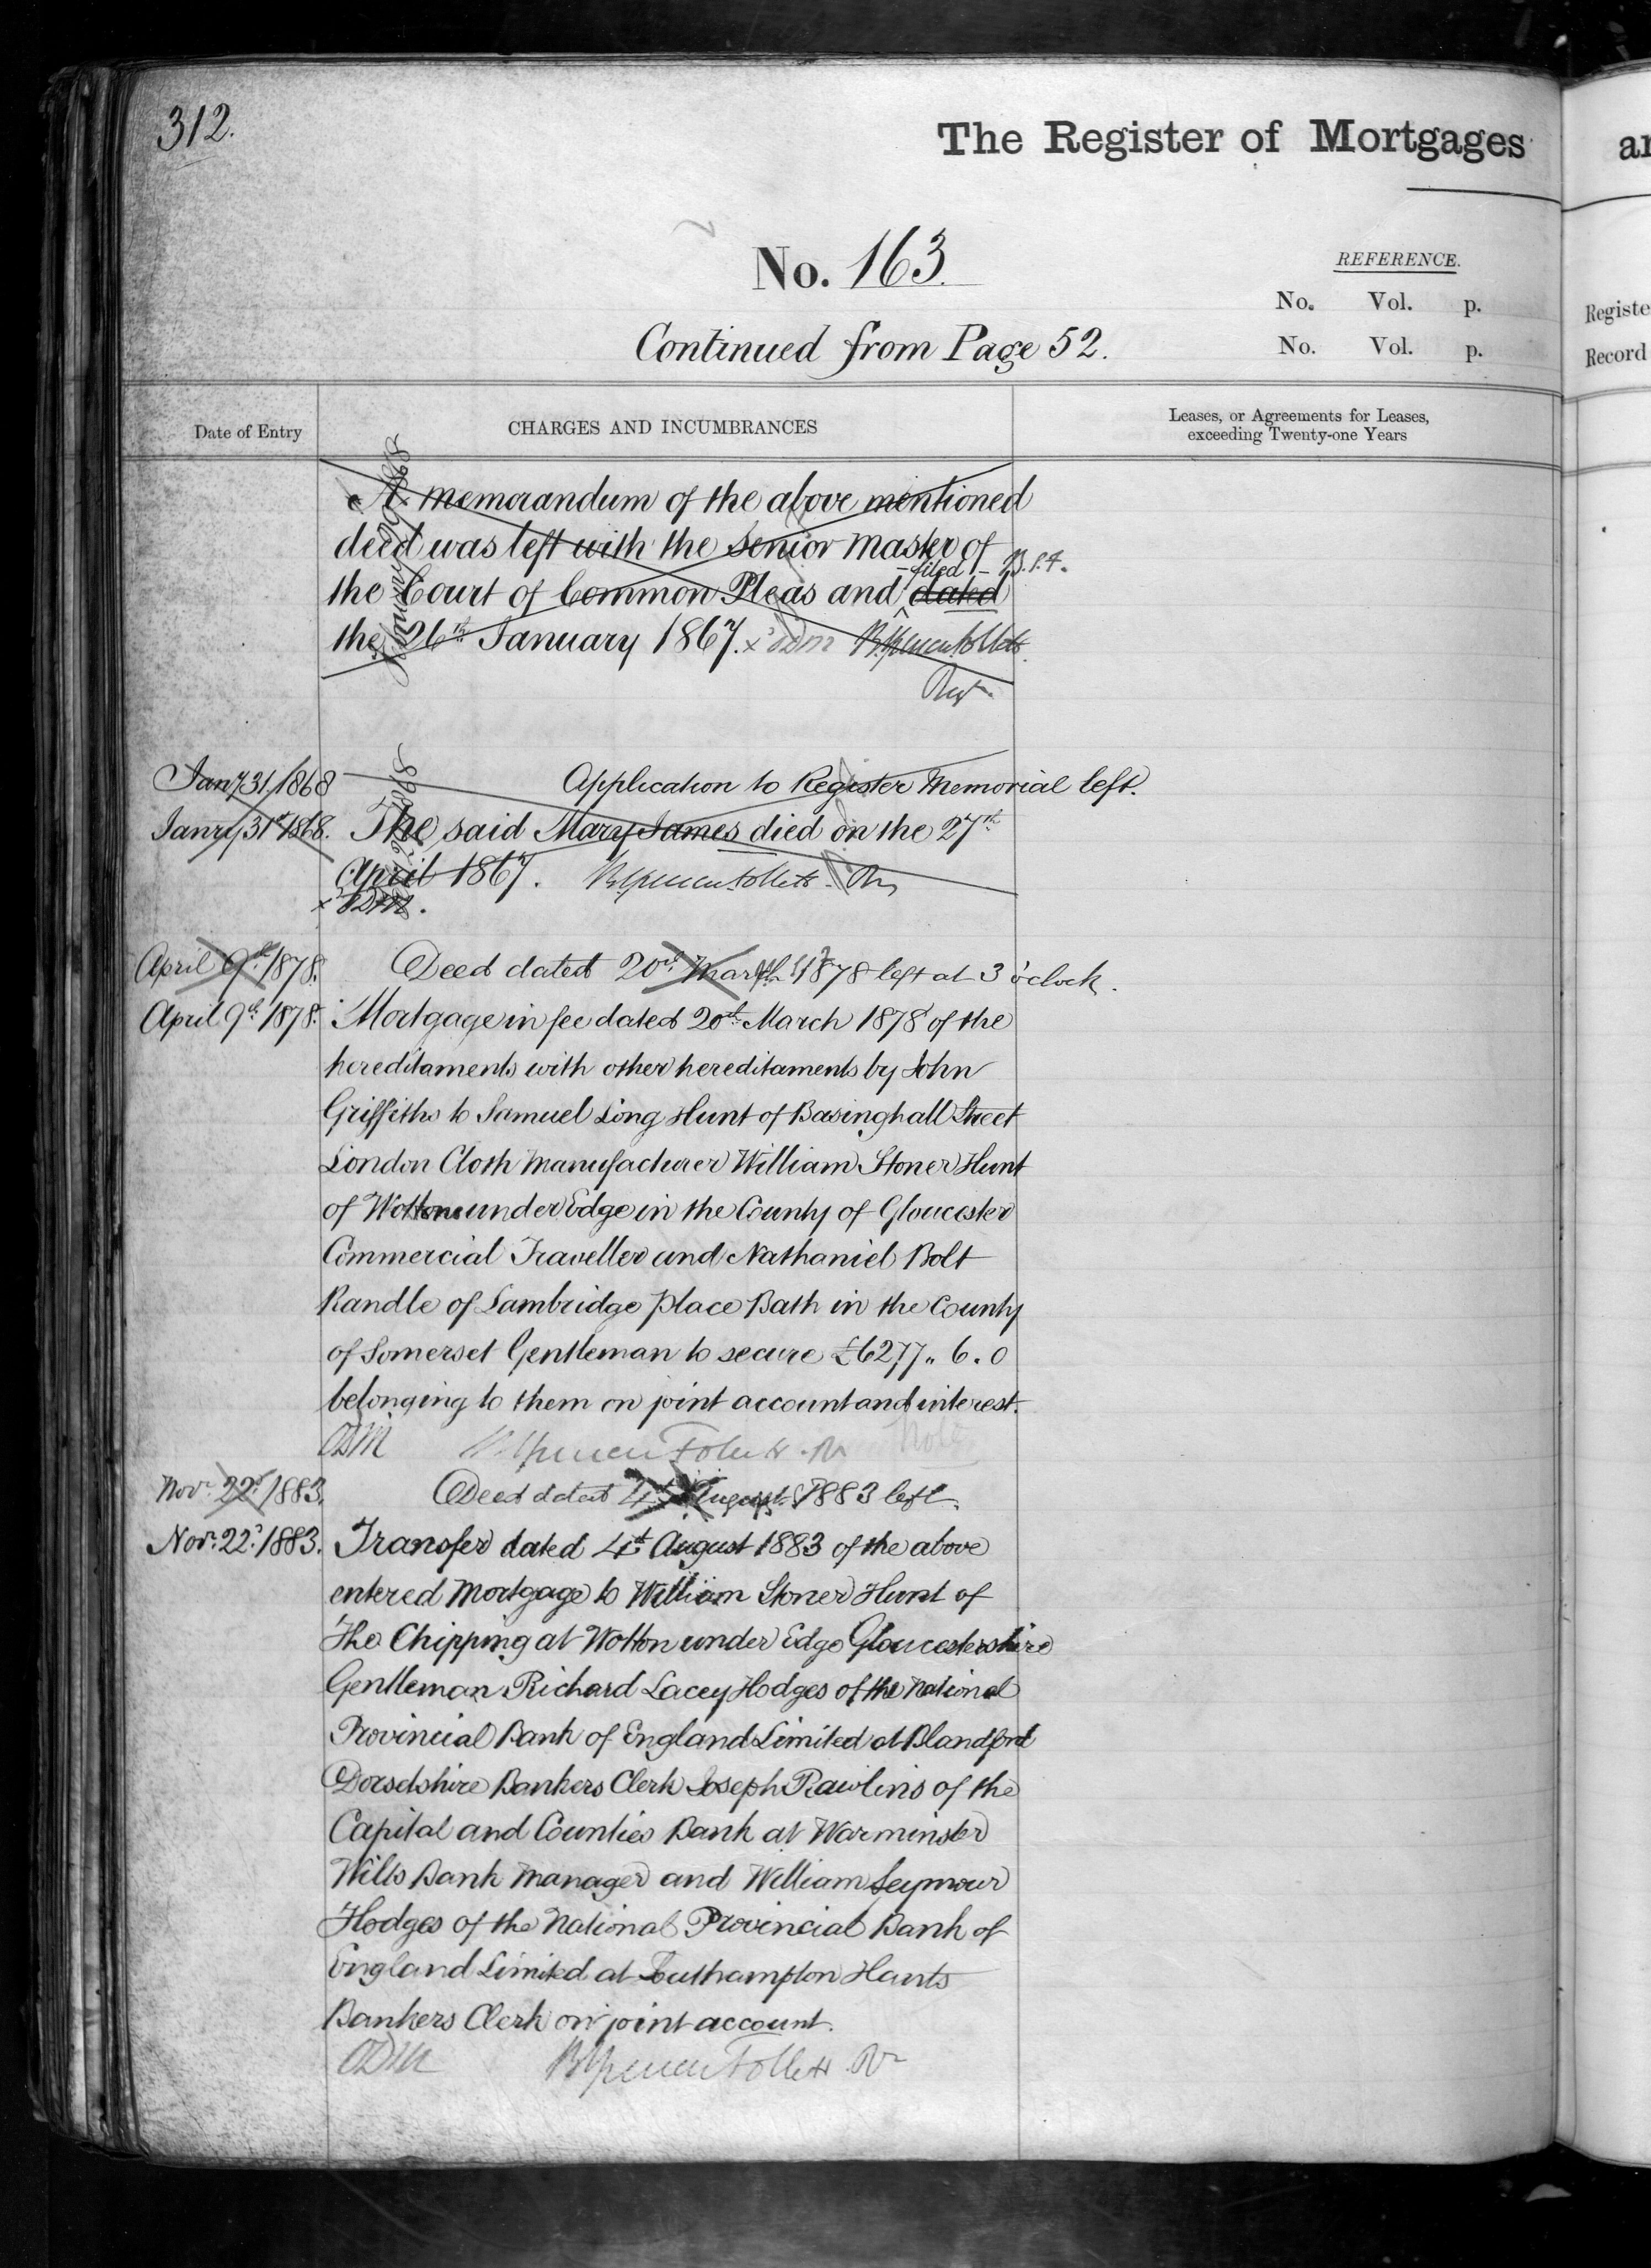 312.
The Register of Mortgages
No. 163.
REFERENCE.
No. Vol. p.
No. Vol. p.
Continued from Page 52.
Date of Entry
CHARGES AND INCUMBRANCES
Leases, or Agreements for Leases,
exceeding Twenty-one Years
A memorandum of the above mentioned
deed was left with the Senior Master of
the Court of Common Pleas and dated - filed - B.S.F.
the 26th January 1867.
Jany 31 1868 Application to Register Memorial left.
Janry 31st 1868. The said Mary James died on the 27th
April 1867.
April 9th 1878. Deed dated 20th March 1878 left at 3 o'clock.
April 9th 1878. Mortgage in fee dated 20th March 1878 of the
hereditaments with other hereditaments by John
Griffiths to Samuel Long Hunt of Basinghall Street
London Cloth Manufacturer William Stoner Hunt
of Wotton under Edge in the County of Gloucester
Commercial Traveller and Nathaniel Bolt
Randle of Lambridge Place Bath in the County
of Somerset Gentleman to secure £6277 „ 6 . 0
belonging to them on joint account and interest.
ODM
Novr. 22d 1883. Deed dated 4th August 1883 left.
Novr. 22d 1883. Transfer dated 4th August 1883 of the above
entered Mortgage to William Stoner Hunt of
The Chipping at Wotton under Edge Gloucestershire
Gentleman Richard Lacey Hodges of the National
Provincial Bank of England Limited at Blandford
Dorsetshire Bankers Clerk Joseph Rawlins of the
Capital and Counties Bank at Warminster
Wilts Bank Manager and William Seymour
Hodges of the National Provincial Bank of
England Limited at Southampton Hants
Bankers Clerk on joint account.
ODM
Registe
Record